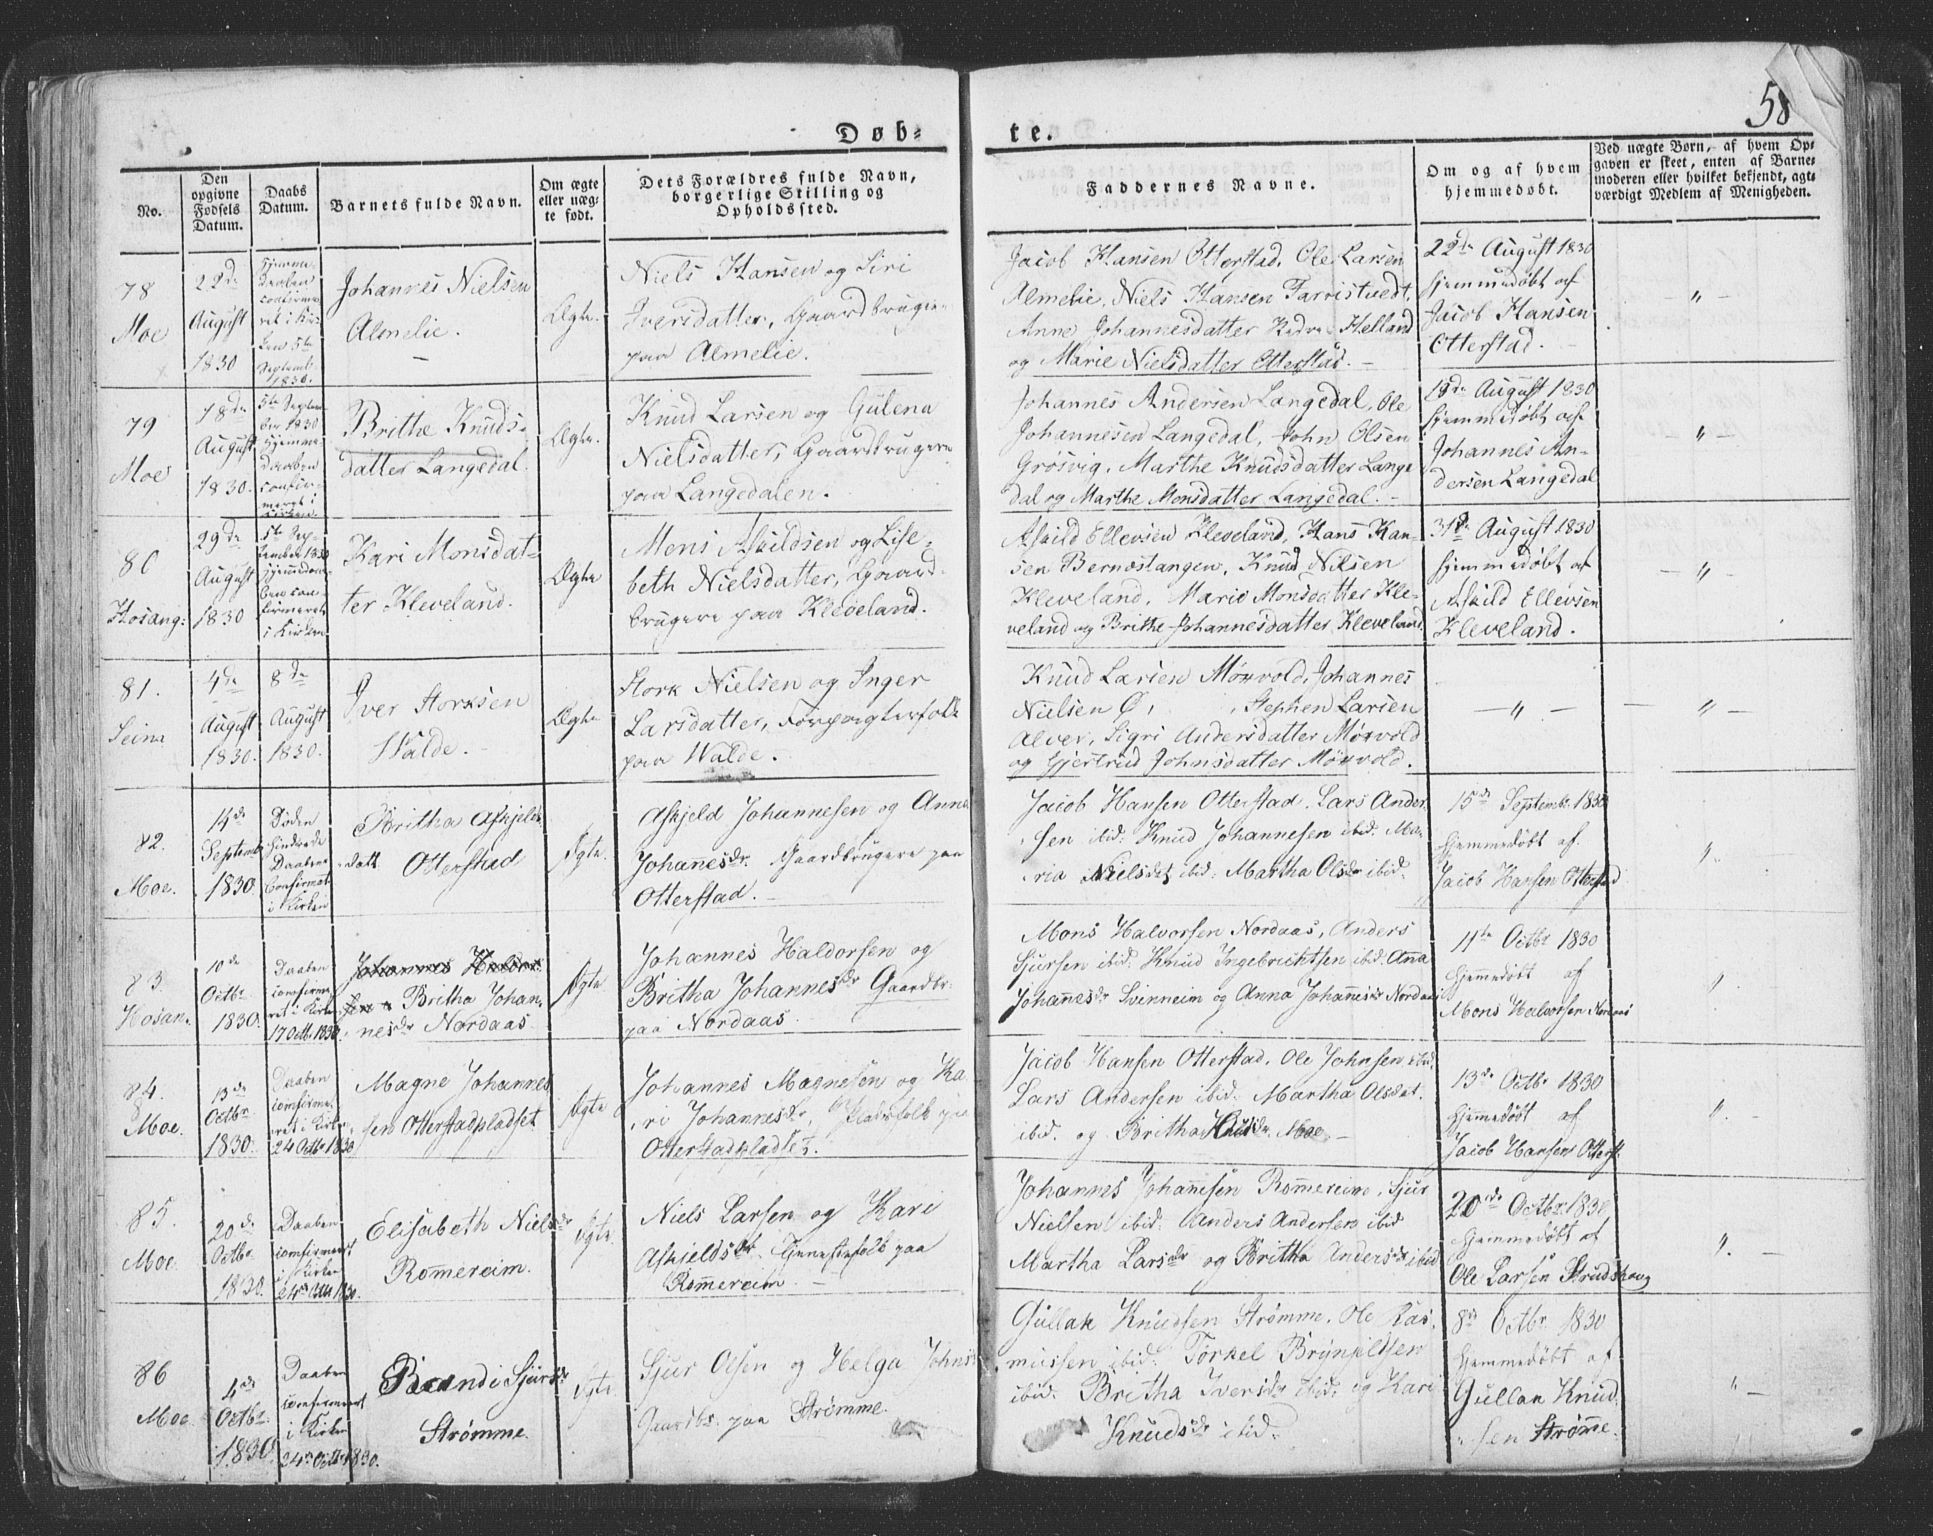 58
Døb-
te.
No.
Den
opgivne
Fødsels
Datum.
Daabs
Datum.
Barnets fulde Navn.
Om ægte
eller uæg-
te født.
Dets Forældres fulde Navn,
borgerlige Stilling og
Opholdssted.
Faddernes Navne.
Om og af hvem
hjemmedøbt.
Ved uægte Børn, af hvem Op-
gaven er skeet, enten af Barne-
moderen eller hvilket bekjendt, agt-
værdigt Medlem af Menigheden.
78
Moe
22de
August
1830
Hjemme-
daaben
confirme-
ret i Kir
den 5te
Septemb.
1830.
Johannes Nielsen
Almelie.
Ægte.
Niels Hansen og Siri
Iversdatter, Gaardbrugere
paa Almelie.
Jacob Hansen Otterstad, Ole Larsen
Almelie, Niels Hansen Farristvedt,
Anne Johannesdatter Helland
og Marie Nielsdatter Otterstad.
22de August 1830
hjemmedøbt af
Jacob Hansen
Otterstad.
- " -
79
Moe
18de
August
1830.
5te Septem-
ber 1830
hjemme-
daaben
confir-
meret i
Kirken.
Brithe Knuds-
datter Langedal.
Ægte.
Knud Larsen og Gulena
Nielsdatter, Gaardbrugere
paa Langedalen.
Johannes Andersen Langedal, Ole
Johannesen Langedal, John Olsen
Grøsvig, Marthe Knudsdatter Lange
dal og Marthe Monsdatter Langedal. -
19de August 1830
hjemmedøbt af
Johannes An-
dersen Langedal
- " -
80
Hosang:
29de
August
1830
5te Sep-
tember 1830
hjemmedaa-
ben con-
firmeret
i Kirken
Kari Monsdat-
ter Kleveland.
Ægte
Mons Askildsen og Lise-
beth Nielsdatter, Gaard-
brugere paa Kleveland.
Askild Ellevsen Kleveland, Hans Han-
sen Bernestangen, Knud Nilsen
Kleveland, Marie Monsdatter Kle-
veland og Brithe Johannesdatter Kleveland.
31te August 1830
hjemmedøbt af
Askild Ellevsen
Kleveland.
- " -
81.
Seim
4de
August
1830.
8de
August
1830.
Iver Storksen
Walde.
Ægte
Stork Nielsen og Inger
Larsdatter, Forpagterfolk
paa Walde.
Knud Larsen Mørvold, Johannes
Nielsen Ø, Stephen Larsen
Alver, Sigri Andersdatter Mørvold
og Gjertrud Johnsdatter Mørvold.
- " -
- " -
82.
Moe.
14de
Septemb
1830.
Døden
hindrede
Daabens
Confirmat
i Kirken
Britha Askjelds
datt. Otterstad
Ægte.
Askjeld Johannesen og Anne
Johanesdr. Gaardbrugere paa
Otterstad.
Jacob Hansen Otterstad, Lars Ander
sen ibid: Knud Johannesen ibid: Ma-
ria Nielsdat ibid: Martha Olsdr ibid.
15de Septembr 1830
hjemmedøbt af
Jacob Hansen Otterstad
"
83.
Hosan.
10de
Octbr
1830.
Daaben
confirme-
ret i Kirken
17 Octbr 1830.
Johannes Haldor
sen Britha Johan-
nesdr Nordaas.
Ægte
Johannes Haldorsen og
Britha Johannesdr Gaardbr.
paa Nordaas.
Mons Halvorsen Nordaas, Anders
Sjursen ibid: Knud Ingebrichtsen ibid: Anna
Johannesdr Svinneim og Anna Johannesdr Nordaas
11te Octbr 1830
hjemmedøbt af
Mons Halvorsen Nordaas
"
84.
Moe.
13de
Octbr.
1830.
Daaben
confirme-
ret i Kirken
24 Octbr 1830
Magne Johannes
sen Otterstadpladset
Ægte
Johannes Magnesen og Ka
ri Johannesdr, Pladsfolk paa
Otterstadpladset.
Jacob Hansen Otterstad, Ole Johnsen ibid.
Lars Andersen ibid: Martha Olsdat.
ibid. og Britha Moe. -
13de Octbr 1830
hjemmedøbt af
Jacob Hansen Otterst.
" -
85.
Moe.
20de
Octbr
1830.
Daaben
confirmeret
i Kirken
24de Octbr 1830.
Elisabeth Nielsdr
Rommereim.
Ægte.
Niels Larsen og Kari
Askjeldsdr. Tjenestefolk paa
Rommereim. -
Johannes Johannesen Rommereim, Sjur
Nielsen ibid: Anders Andersen ibid
Martha Larsdr og Britha Andersdr ibid
20de Octbr. 1830
hjemmedøbt af
Ole Larsen Strudshoug
" -
86
Moe.
4de
Octbr.
1830.
Daaben
confirmeret
i Kirken
24de Octbr 1830.
Brandi Sjursdr
Strømme.
Ægte
Sjur Olsen og Helga Johnsdr
Gaardbr. paa Strømme.
Gullak Knudsen Strømme, Ole Ras-
mussen ibid: Torkel Brynjeldsen
ibid. Britha Iversdr ibid: og Kari
Knudsdr ibid:
8de Octbr. 1830
hjemmedøbt af
Gullak Knud-
sen Strømme.
" -